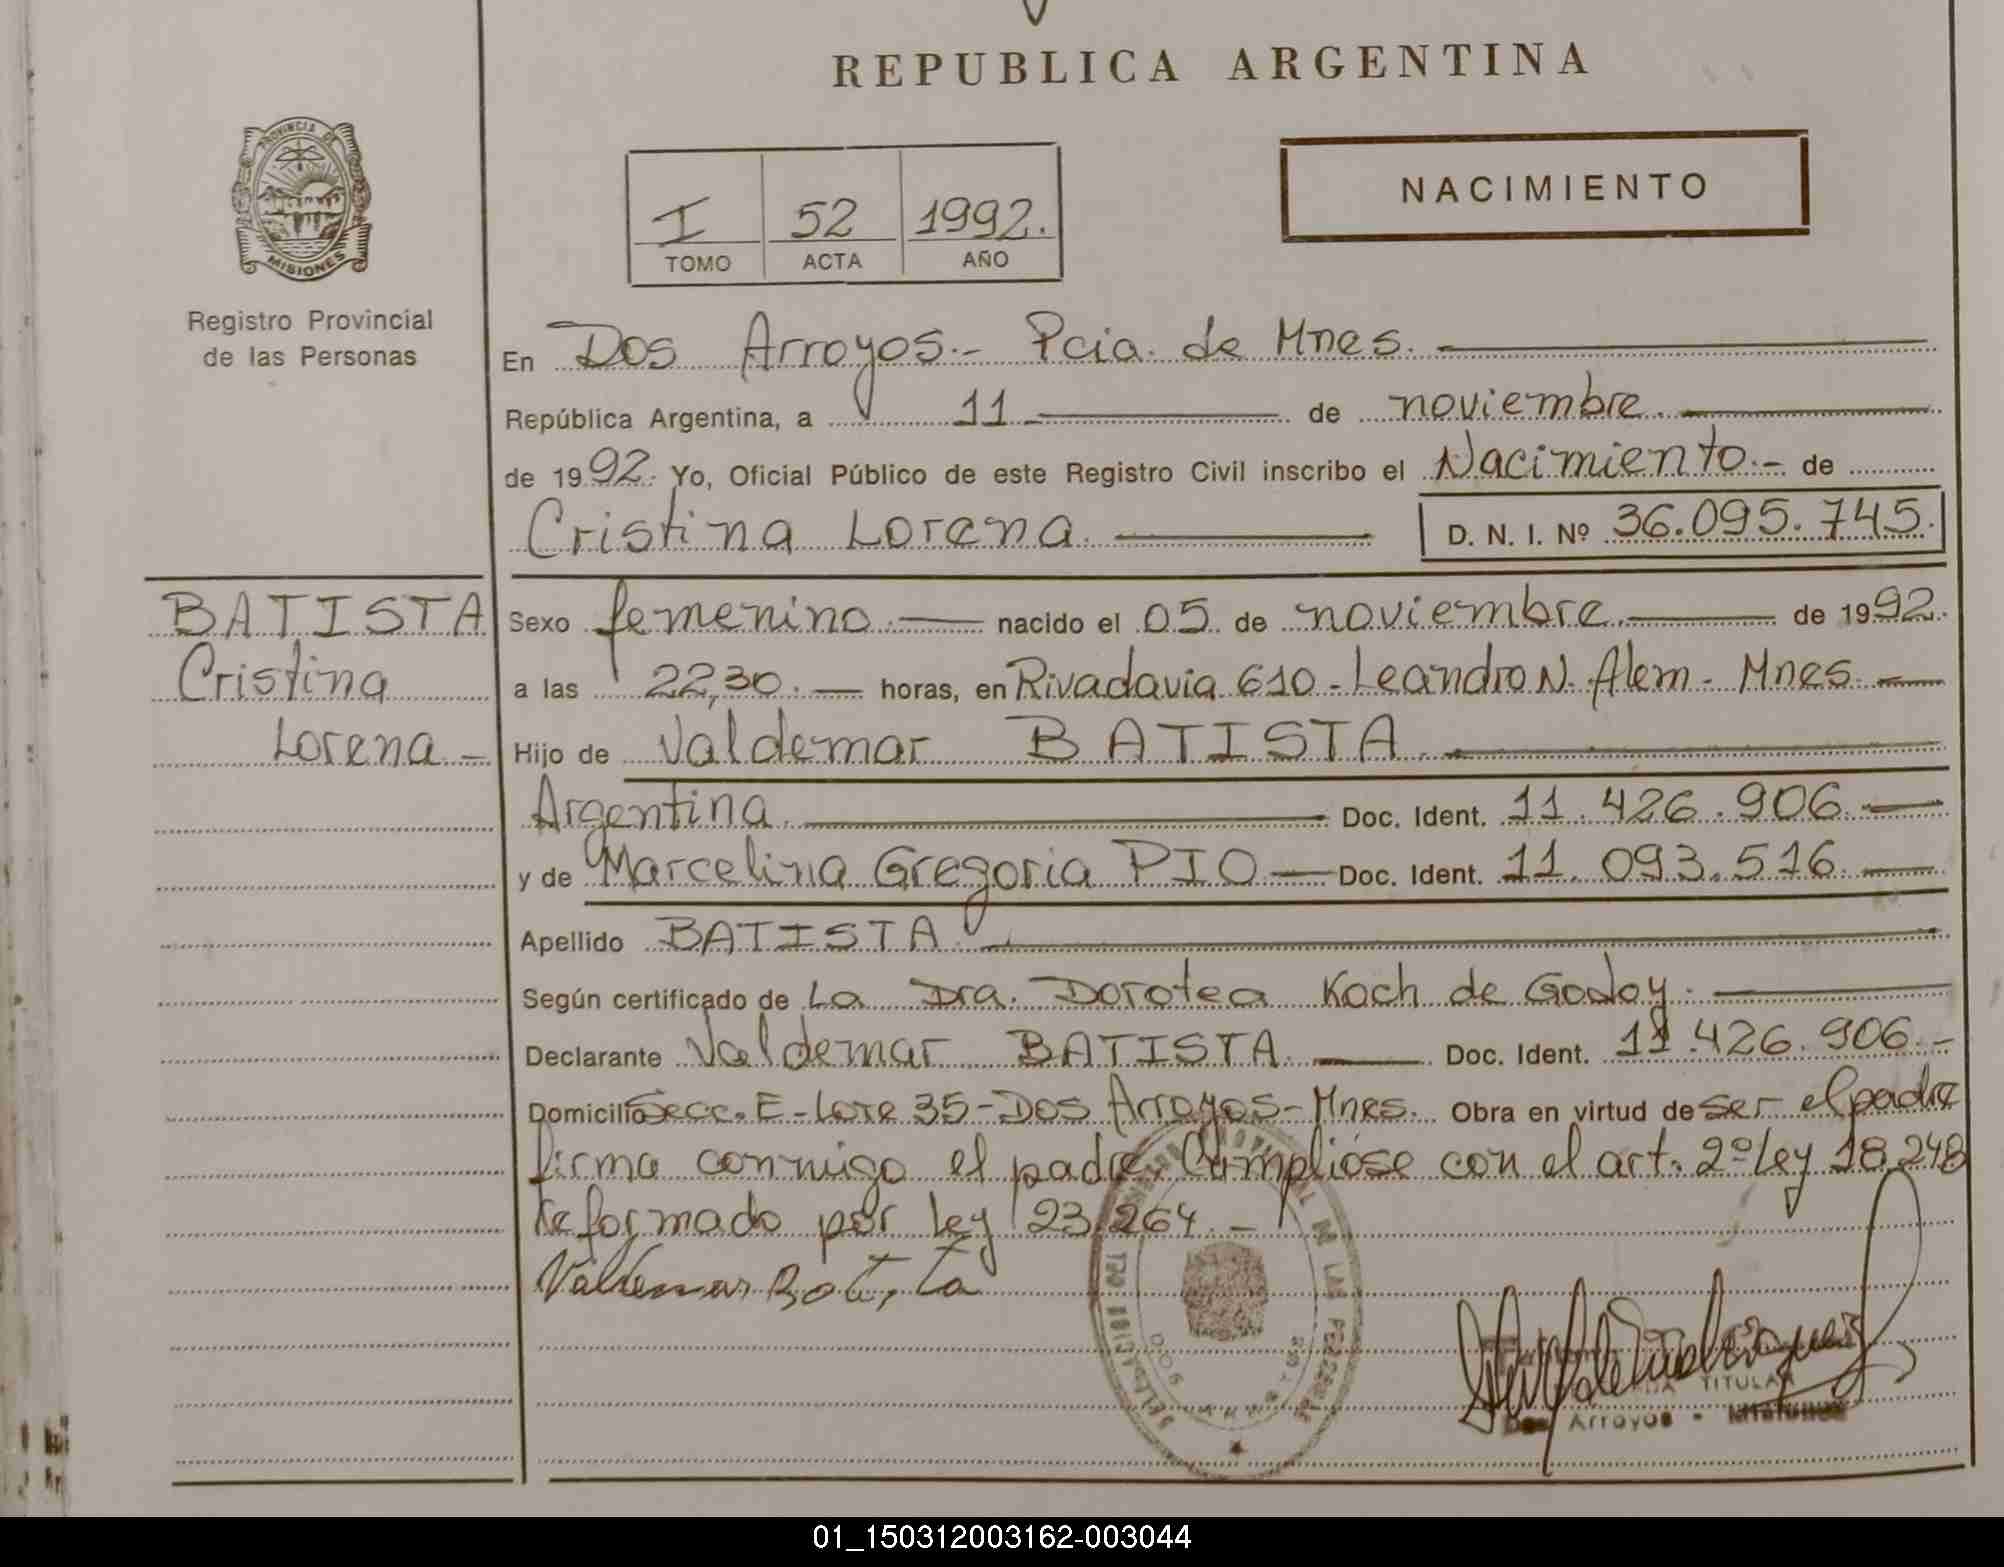 REPUBLICA ARGENTINA
PROVINCIA DE
MISIONES
Registro Provincial
de las Personas
I 52 1992.
TOMO ACTA AÑO
NACIMIENTO
En Dos Arroyos.- Pcia. de Mnes.
República Argentina, a 11 de noviembre.
de 1992. Yo, Oficial Público de este Registro Civil inscribo el Nacimiento.- de
Cristina Lorena. D. N. I. Nº 36.095.745.
BATISTA
Cristina
Lorena.-
Sexo femenino. nacido el 05 de noviembre. de 1992.
a las 22,30. horas, en Rivadavia 610 - Leandro N. Alem - Mnes.
Hijo de Valdemar BATISTA.
Argentina. Doc. Ident. 11.426.906.
y de Marcelina Gregoria PIO Doc. Ident. 11.093.516.
Apellido BATISTA.
Según certificado de La Dra. Dorotea Koch de Godoy.
Declarante Valdemar BATISTA. Doc. Ident. 11.426.906.-
Domicilio Secc. E - Lote 35 - Dos Arroyos - Mnes. Obra en virtud de ser el padre
firma conmigo el padre. Cumplióse con el art. 2º Ley 18.248
Reformado por Ley 23.264.-
Valdemar Batista
TITULAR
Dos Arroyos - Misiones
01_150312003162-003044